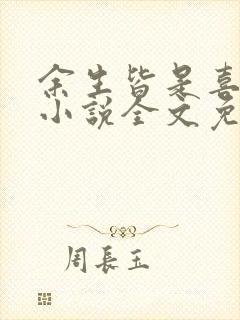 余生皆是喜
小說全文免
周長玉